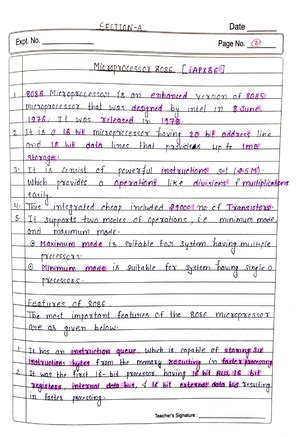 SECTION-A
Date
Expt. No.
Page No. 2
Microprocessor 8086 [iAPX86]
1. 8086 Microprocessor is an enhanced version of 8085
microprocessor that was designed by intel in 8 June,
1976. It was released in 1978.
2. It is a 16 bit microprocessor having 20 bit address line
and 16 bit data lines that provides up to 1MB
storage.
3. It is consist of powerful instructions set
which provides a operations like divisions & multiplications
easily.
4. This integrated cheap included 29000 no of Transistors.
5. It supports two modes of operations, i.e minimum mode,
and maximum mode.
Maximum mode is suitable for system having multiple
processors.
Minimum mode is suitable for system having single
processors.
Features of 8086
The most important features of the 8086 microprocessor
are as given below:
1. It has an instruction queue, which is capable of storing six
instructions bytes from the memory resulting in faster processing
2. It was the first 16-bit processor having 16 bit ALU, 16 bit
registers, internal data bus, & 16 bit external data bus resulting
in faster processing.
Teacher's Signature :